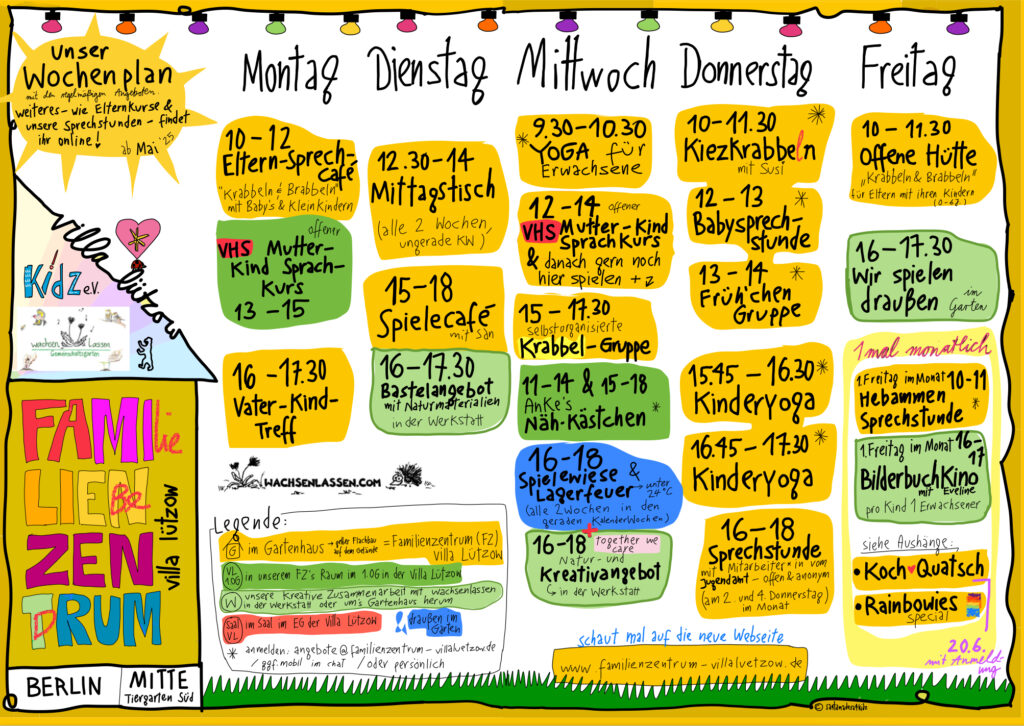 Unser
Wochenplan
mit den regelmäßigen Angeboten.
weiteres – wie Elternkurse &
unsere Sprechstunden – findet
ihr online!
ab Mai '25
villa lützow
Kidz e.V.
wachsen Lassen
Gemeinschaftsgarten
FAMIlie
LIEN BE
ZEN
TDRUM
villa lützow
BERLIN
MITTE
Tiergarten Süd
Montag
10 – 12
Eltern-Sprech-
Café
"Krabbeln & Brabbeln"
mit Baby's & KleinKindern
offener
VHS Mutter-
Kind Sprach-
Kurs
13 – 15
16 – 17.30
Vater-Kind-
Treff
Dienstag
12.30 – 14
Mittagstisch
(alle 2 Wochen,
ungerade KW)
15 – 18
Spielecafé
mit San
16 – 17.30
Bastelangebot
mit Naturmaterialien
in der Werkstatt
Mittwoch
9.30 – 10.30
* YOGA für
Erwachsene
12 – 14 offener
VHS Mutter-Kind
SprachKurs
& danach gern noch
hier spielen + z
15 – 17.30
selbstorganisierte
Krabbel-Gruppe
11 – 14 & 15 – 18
Anke's
Näh-Kästchen *
16 – 18
Spielewiese &
Lagerfeuer → unter 24°C
(alle 2 Wochen in den
geraden KalenderWochen)
+
16 – 18 together we care
Natur- und
Kreativangebot
in der Werkstatt
Donnerstag
10 – 11.30 *
KiezKrabbeln
mit Susi
12 – 13 *
Babysprech-
stunde
13 – 14 *
Früh'chen
Gruppe
15.45 – 16.30 *
Kinderyoga
16.45 – 17.30 *
Kinderyoga
16 – 18
Sprechstunde
mit Mitarbeiter*in vom
Jugendamt – offen & anonym
(am 2. und 4. Donnerstag)
im Monat
Freitag
10 – 11.30
Offene Hütte
"Krabbeln & Brabbeln"
für Eltern mit ihren Kindern
(0-6J.)
16 – 17.30
Wir spielen
draußen im
Garten
1 mal monatlich
1. Freitag im Monat 10-11
Hebammen
Sprechstunde *
1. Freitag im Monat 16-17
BilderbuchKino
mit Eveline
pro Kind 1 Erwachsener
siehe Aushänge:
• Koch♥Quatsch
• Rainbowies
special
20.6.
mit Anmeldung
WACHSENLASSEN.COM
Legende:
G im Gartenhaus → gelber Flachbau auf dem Gelände = Familienzentrum (FZ) villa Lützow
VL 1.06 in unserem FZ's Raum im 1.06 in der Villa Lützow
W unsere Kreative Zusammenarbeit mit wachsenlassen
in der Werkstatt oder um's Gartenhaus herum
Saal VL Saal im EG der Villa Lützow
draußen im Garten
* anmelden: angebote@familienzentrum-villaluetzow.de
/ ggf. mobil im chat / oder persönlich
schaut mal auf die neue Webseite
www.familienzentrum-villaluetzow.de